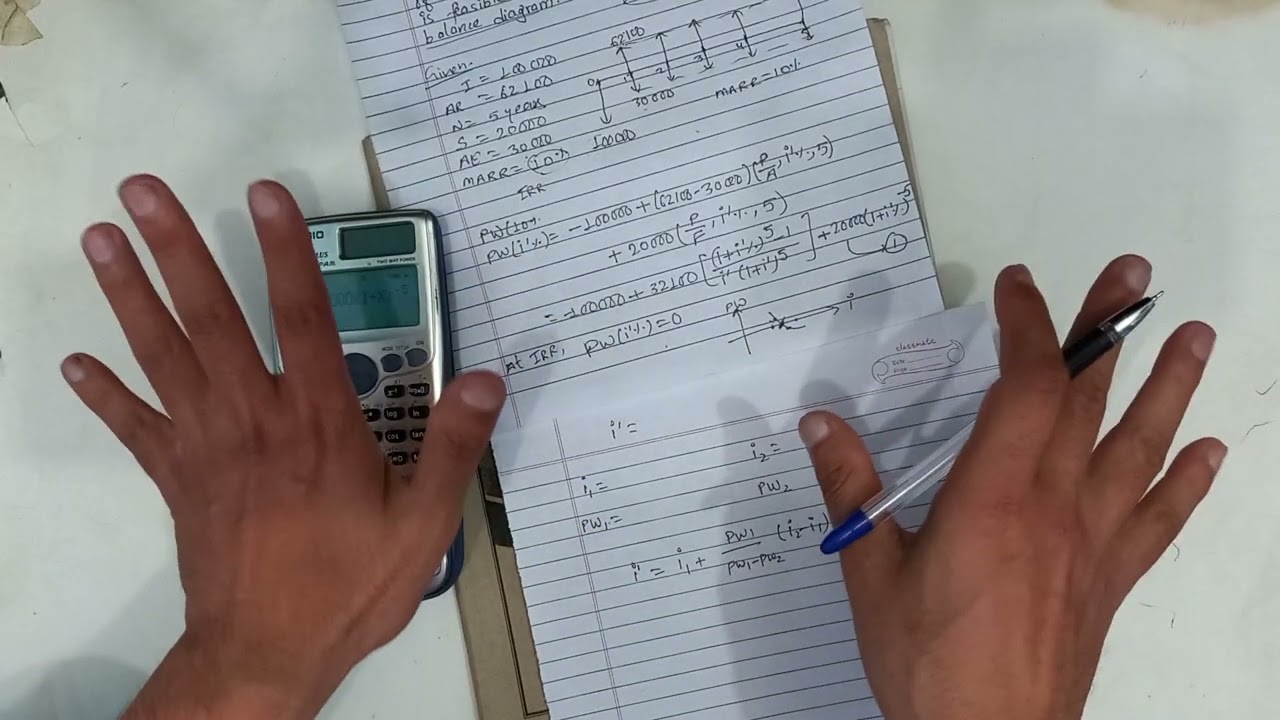 is fasible
balance diagram.
Given:
I = 100000
AR = 62100
N = 5 years
S = 20000
AE = 30000
MARR = 10%
IRR
62100
0 1 2 3 4 5
30000
100000
MARR = 10%
PW(10%
PW(i'%) = -100000 + (62100-30000) (P/A, i'%, 5)
+ 20000 (P/F, i'%, 5)
= -100000 + 32100 [(1+i'%)^5 - 1 / i'(1+i')^5] + 20000(1+i'%)^-5
1
At IRR, PW(i'%) = 0
PW
i
classmate
Date
Page
i' =
i₁ =
i₂ =
PW₁ =
PW₂
i' = i₁ + PW1 / PW₁-PW₂ (i₂-i₁)
TWO WAY POWER
MODE SETUP
ON
x⁻¹
log
ln
cos
tan